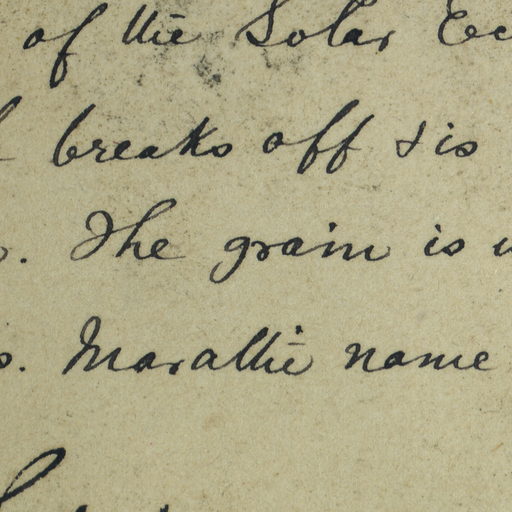 of the Solar Ec
breaks off & is
. The grain is
. Marathi name